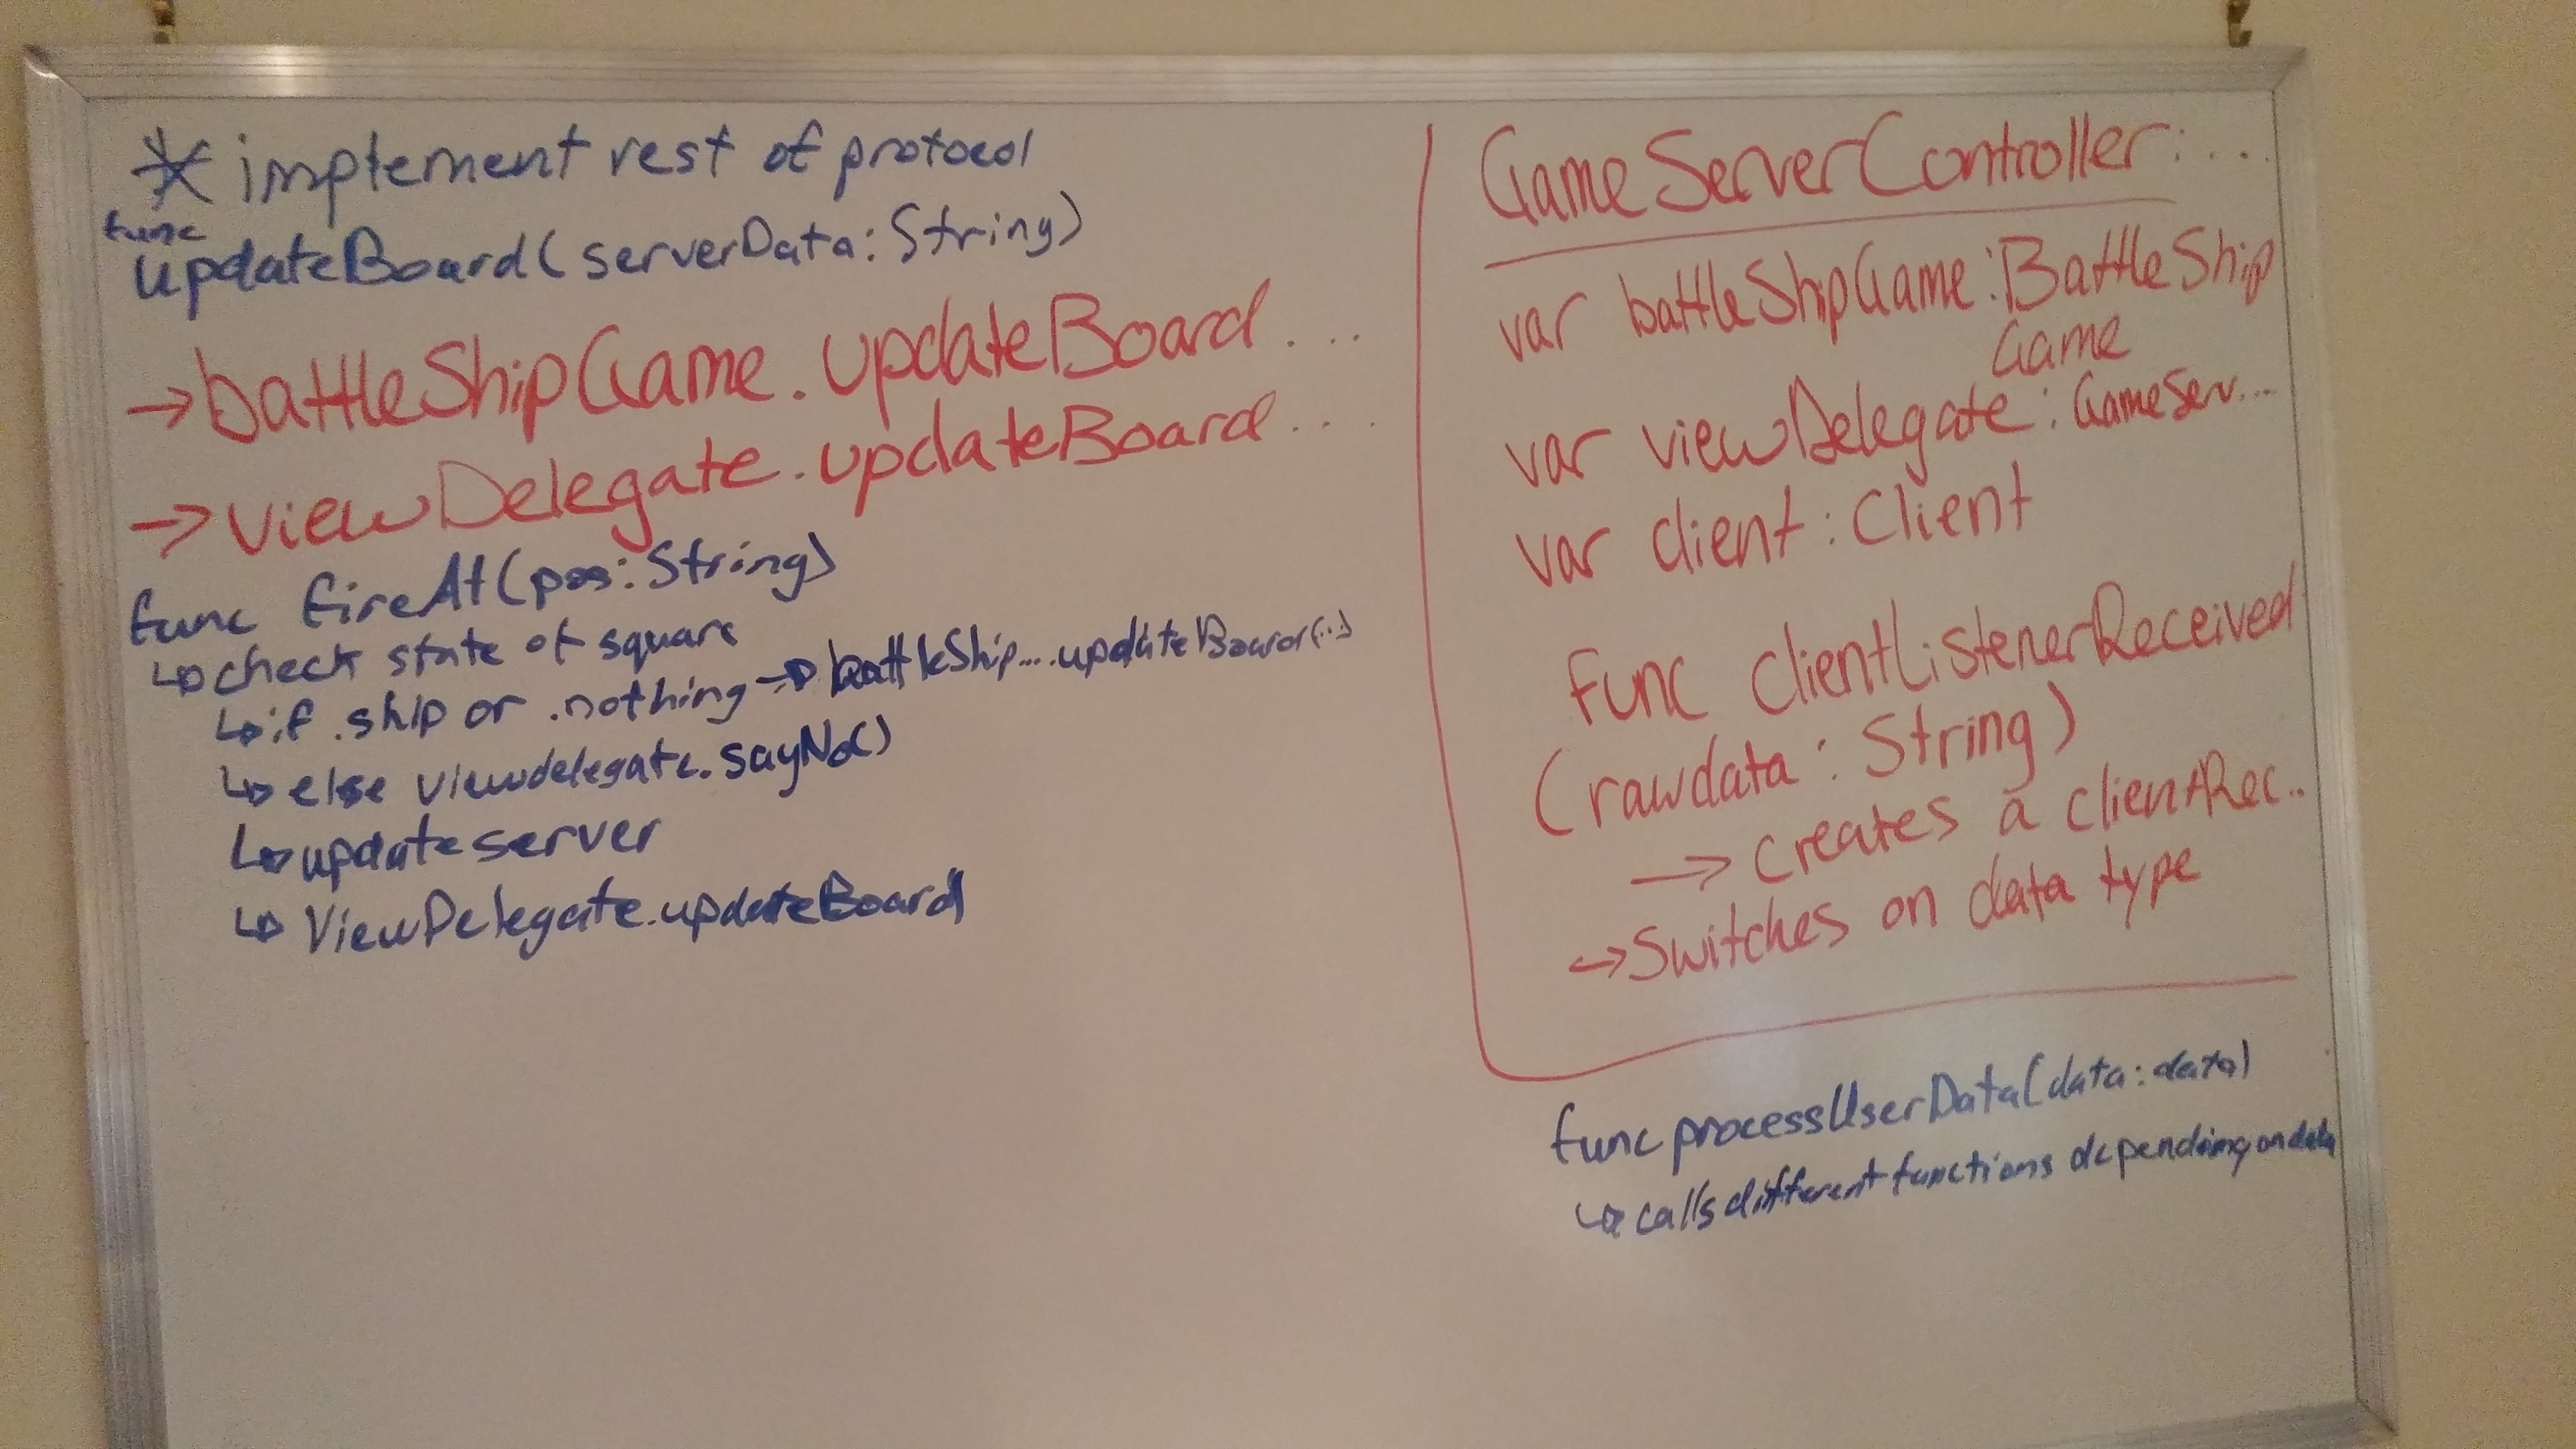 * implement rest of protocol
func
updateBoard(serverData: String)
→battleShipGame.updateBoard...
→viewDelegate.updateBoard....
func fireAt(pos: String)
↳check state of square
↳if .ship or .nothing → battleShip....updateBoard(..)
↳else viewdelegate.sayNo()
↳update server
↳ViewDelegate.updateBoard
GameServerController:...
var battleShipGame:BattleShip
Game
var viewDelegate: GameServ...
var client: Client
func clientListenerReceived
(rawdata: String)
→ creates a clientRec..
→Switches on data type
func processUserData(data:data)
↳calls different functions depending on data